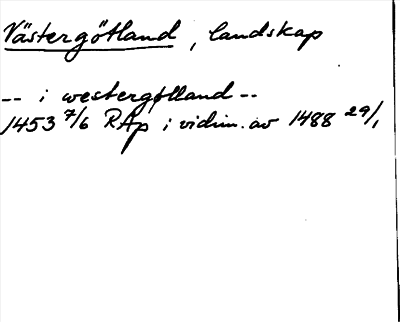 Västergötland, landskap
-- i westergøtland --
1453 7/6 RAp i vidim. av 1488 29/1